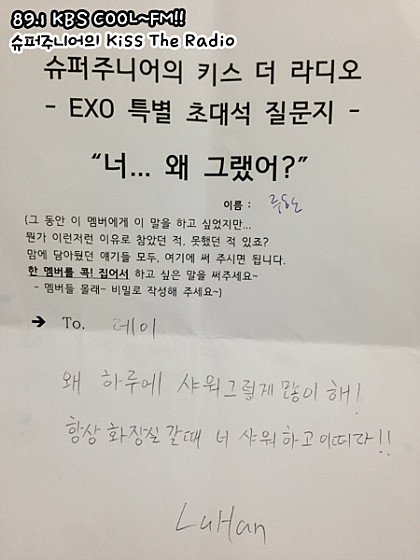 89.1 KBS COOL~FM!!
슈퍼주니어의 Kiss The Radio
슈퍼주니어의 키스 더 라디오
- EXO 특별 초대석 질문지 -
“너... 왜 그랬어?”
이름 : 루한
(그 동안 이 멤버에게 이 말을 하고 싶었지만...
뭔가 이런저런 이유로 참았던 적, 못했던 적 있죠?
맘에 담아뒀던 얘기들 모두, 여기에 써 주시면 됩니다.
한 멤버를 콕! 집어서 하고 싶은 말을 써주세요~
- 멤버들 몰래~ 비밀로 작성해 주세요~)
➔ To. 레이
왜 하루에 샤워그렇게 많이 해!
항상 화장실 갈때 너 샤워하고 이따라!!
LuHan